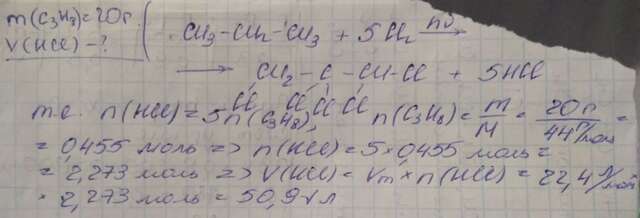 m(C₃H₈)=20г.
V(HCl) - ?
CH₃-CH₂-CH₃ + 5Cl₂ hν→
→ CH₂ - C - CH-Cl + 5HCl
Cl Cl Cl Cl
т.е. n(HCl) = 5n(C₃H₈), n(C₃H₈) = m/M = 20г/44г/моль =
= 0,455 моль => n(HCl) = 5×0,455 моль =
= 2,273 моль => V(HCl) = Vm × n(HCl) = 22,4 л/моль
× 2,273 моль = 50,91 л